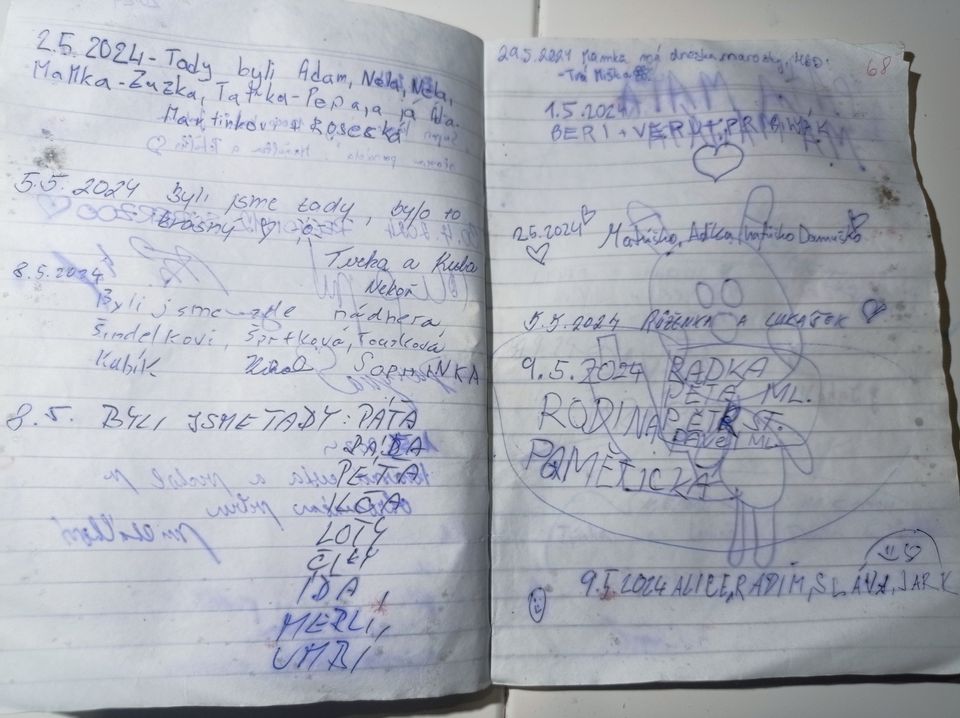 2.5.2024 - Tady byli Adam, Nela, Nela,
Mamka-Zuzka, Taťka-Pepa, a já Áďa.
Martinkovi + Losecká
5.5. 2024 Byli jsme tady, bylo to
krásný
Terka a Kuba
Nekoř
8.5.2024
Byli jsme zde nádhera,
Šindelkovi, Šprtková, Toušková
Kubík SOPHINKA
8.5. BYLI JSME TADY: PÁŤA
PÁĎA
PÉŤA
KÁČA
LOTY
IDA,
MERLI,
UMBI
29.5.2024 Mamka má dneska narozky, 46D!
68
1.5.2024
BERI + VERU + PRIBIŇÁK
2.5.2024 Matúško, Adka, Damuško
5.5.2024 RŮŽENKA A LUKÁŠEK
9.5.2024 RADKA
PÉŤA ML.
RODINA PETR ST.
PAVEL ML.
POMĚTIČKA
9.5.2024 ALICE, RADIM, SLÁVA, JARK